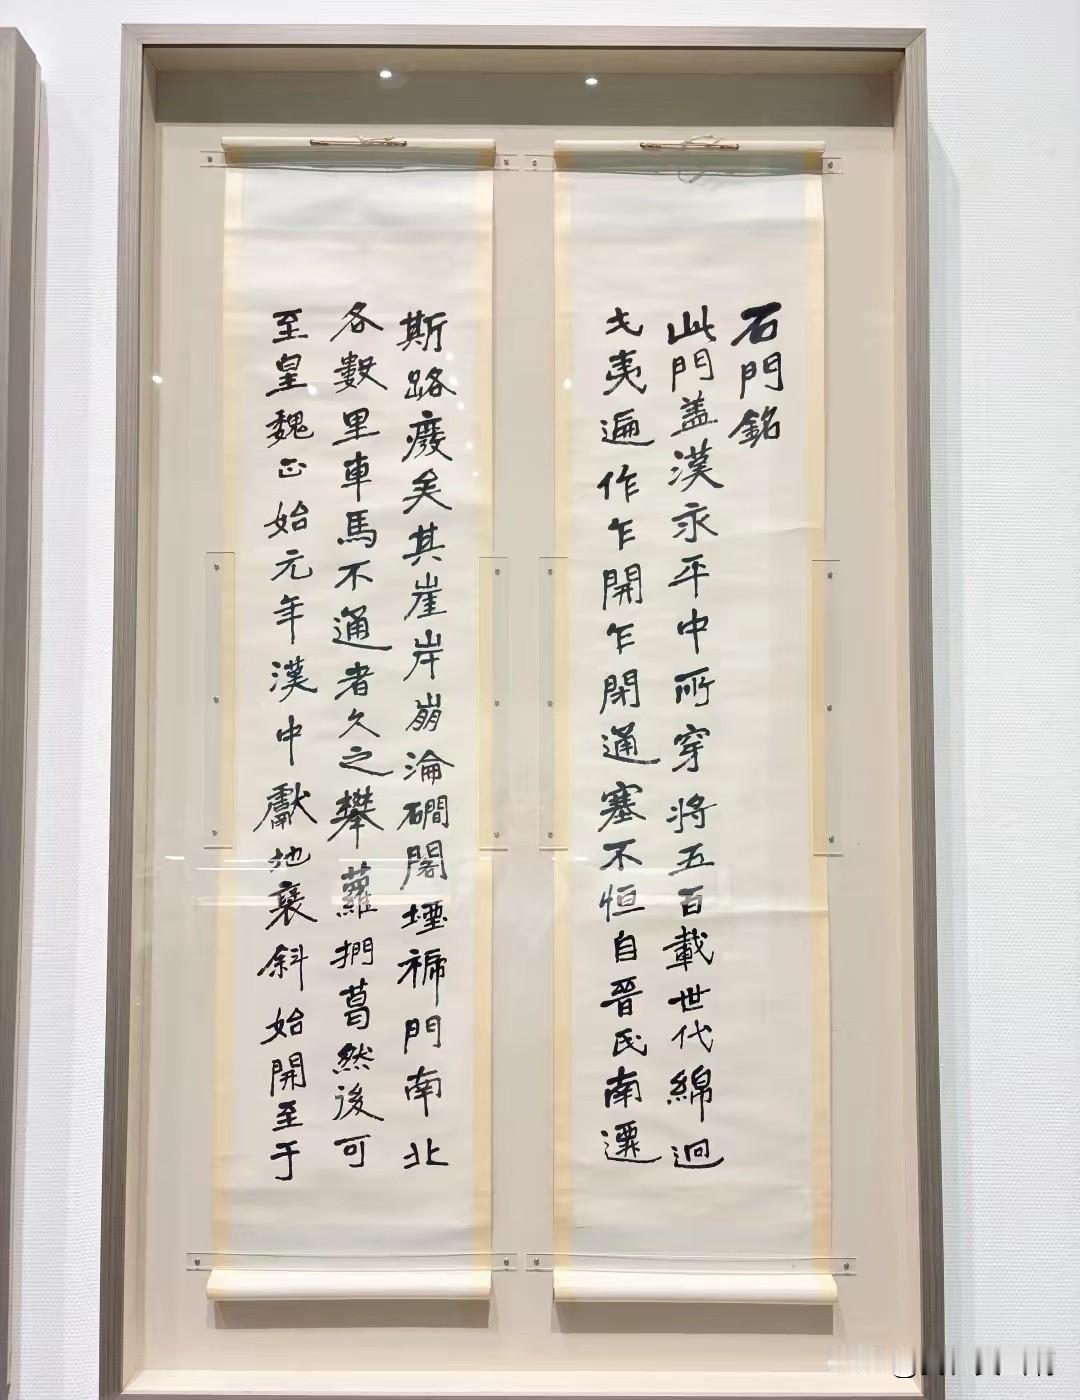 石門銘
此門盖漢永平中所穿將五百載世代綿迥
戎夷遞作乍開乍閉通塞不恒自晉氏南遷
斯路廢矣其崖岸崩淪磵閣堙褫門南北
各數里車馬不通者久之攀蘿捫葛然後可
至皇魏正始元年漢中獻地褒斜始開至于